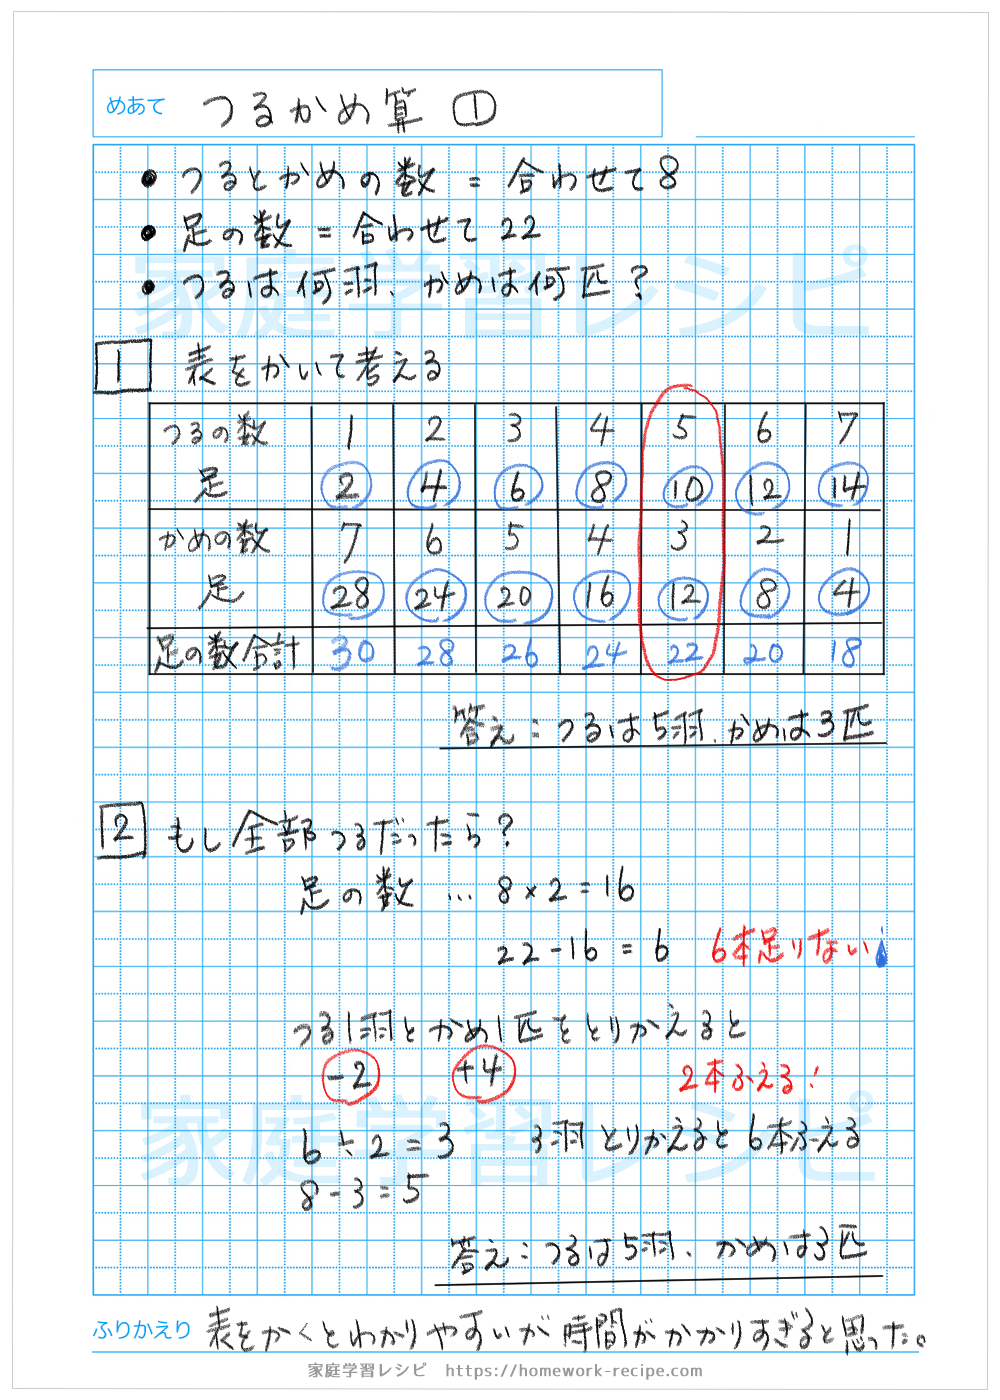 めあて つるかめ算 ①
● つるとかめの数 = 合わせて8
● 足の数 = 合わせて 22
● つるは何羽、かめは何匹？
家庭学習レシピ
1 表をかいて考える
つるの数 1 2 3 4 5 6 7
足 2 4 6 8 10 12 14
かめの数 7 6 5 4 3 2 1
足 28 24 20 16 12 8 4
足の数合計 30 28 26 24 22 20 18
答え：つるは5羽、かめは3匹
2 もし全部つるだったら？
足の数 … 8×2=16
22-16 = 6 6本足りない
つる1羽とかめ1匹をとりかえると
-2 +4 2本ふえる！
家庭学習レシピ
6÷2=3 3羽とりかえると6本ふえる
8-3=5
答え：つるは5羽、かめは3匹
ふりかえり 表をかくとわかりやすいが時間がかかりすぎると思った。
家庭学習レシピ https://homework-recipe.com